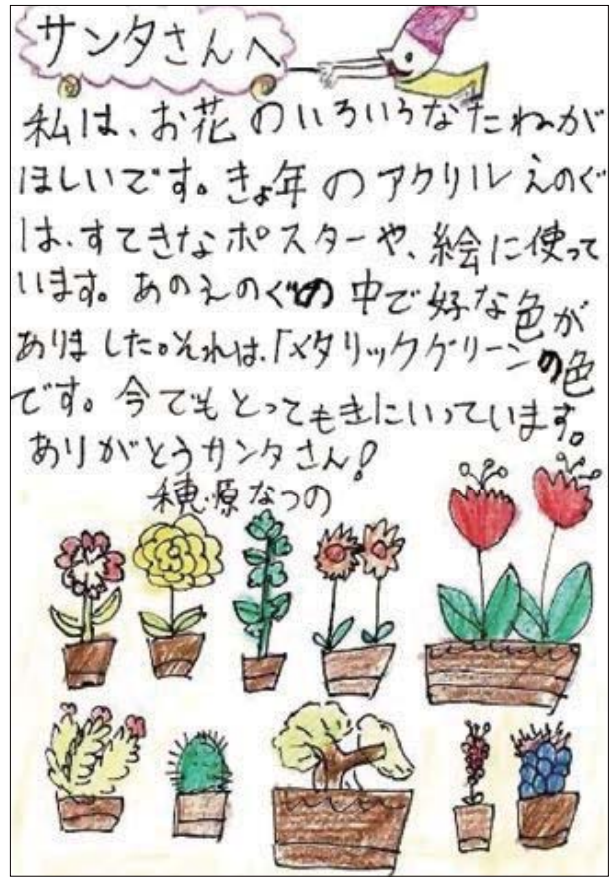 サンタさんへ
私は、お花のいろいろなたねが
ほしいです。きょ年のアクリルえのぐ
は、すてきなポスターや、絵に使って
います。あのえのぐの中で好な色が
ありました。それは、「メタリックグリーンの色
です。今でもとってもきにいっています。
ありがとうサンタさん!
穂原なつの